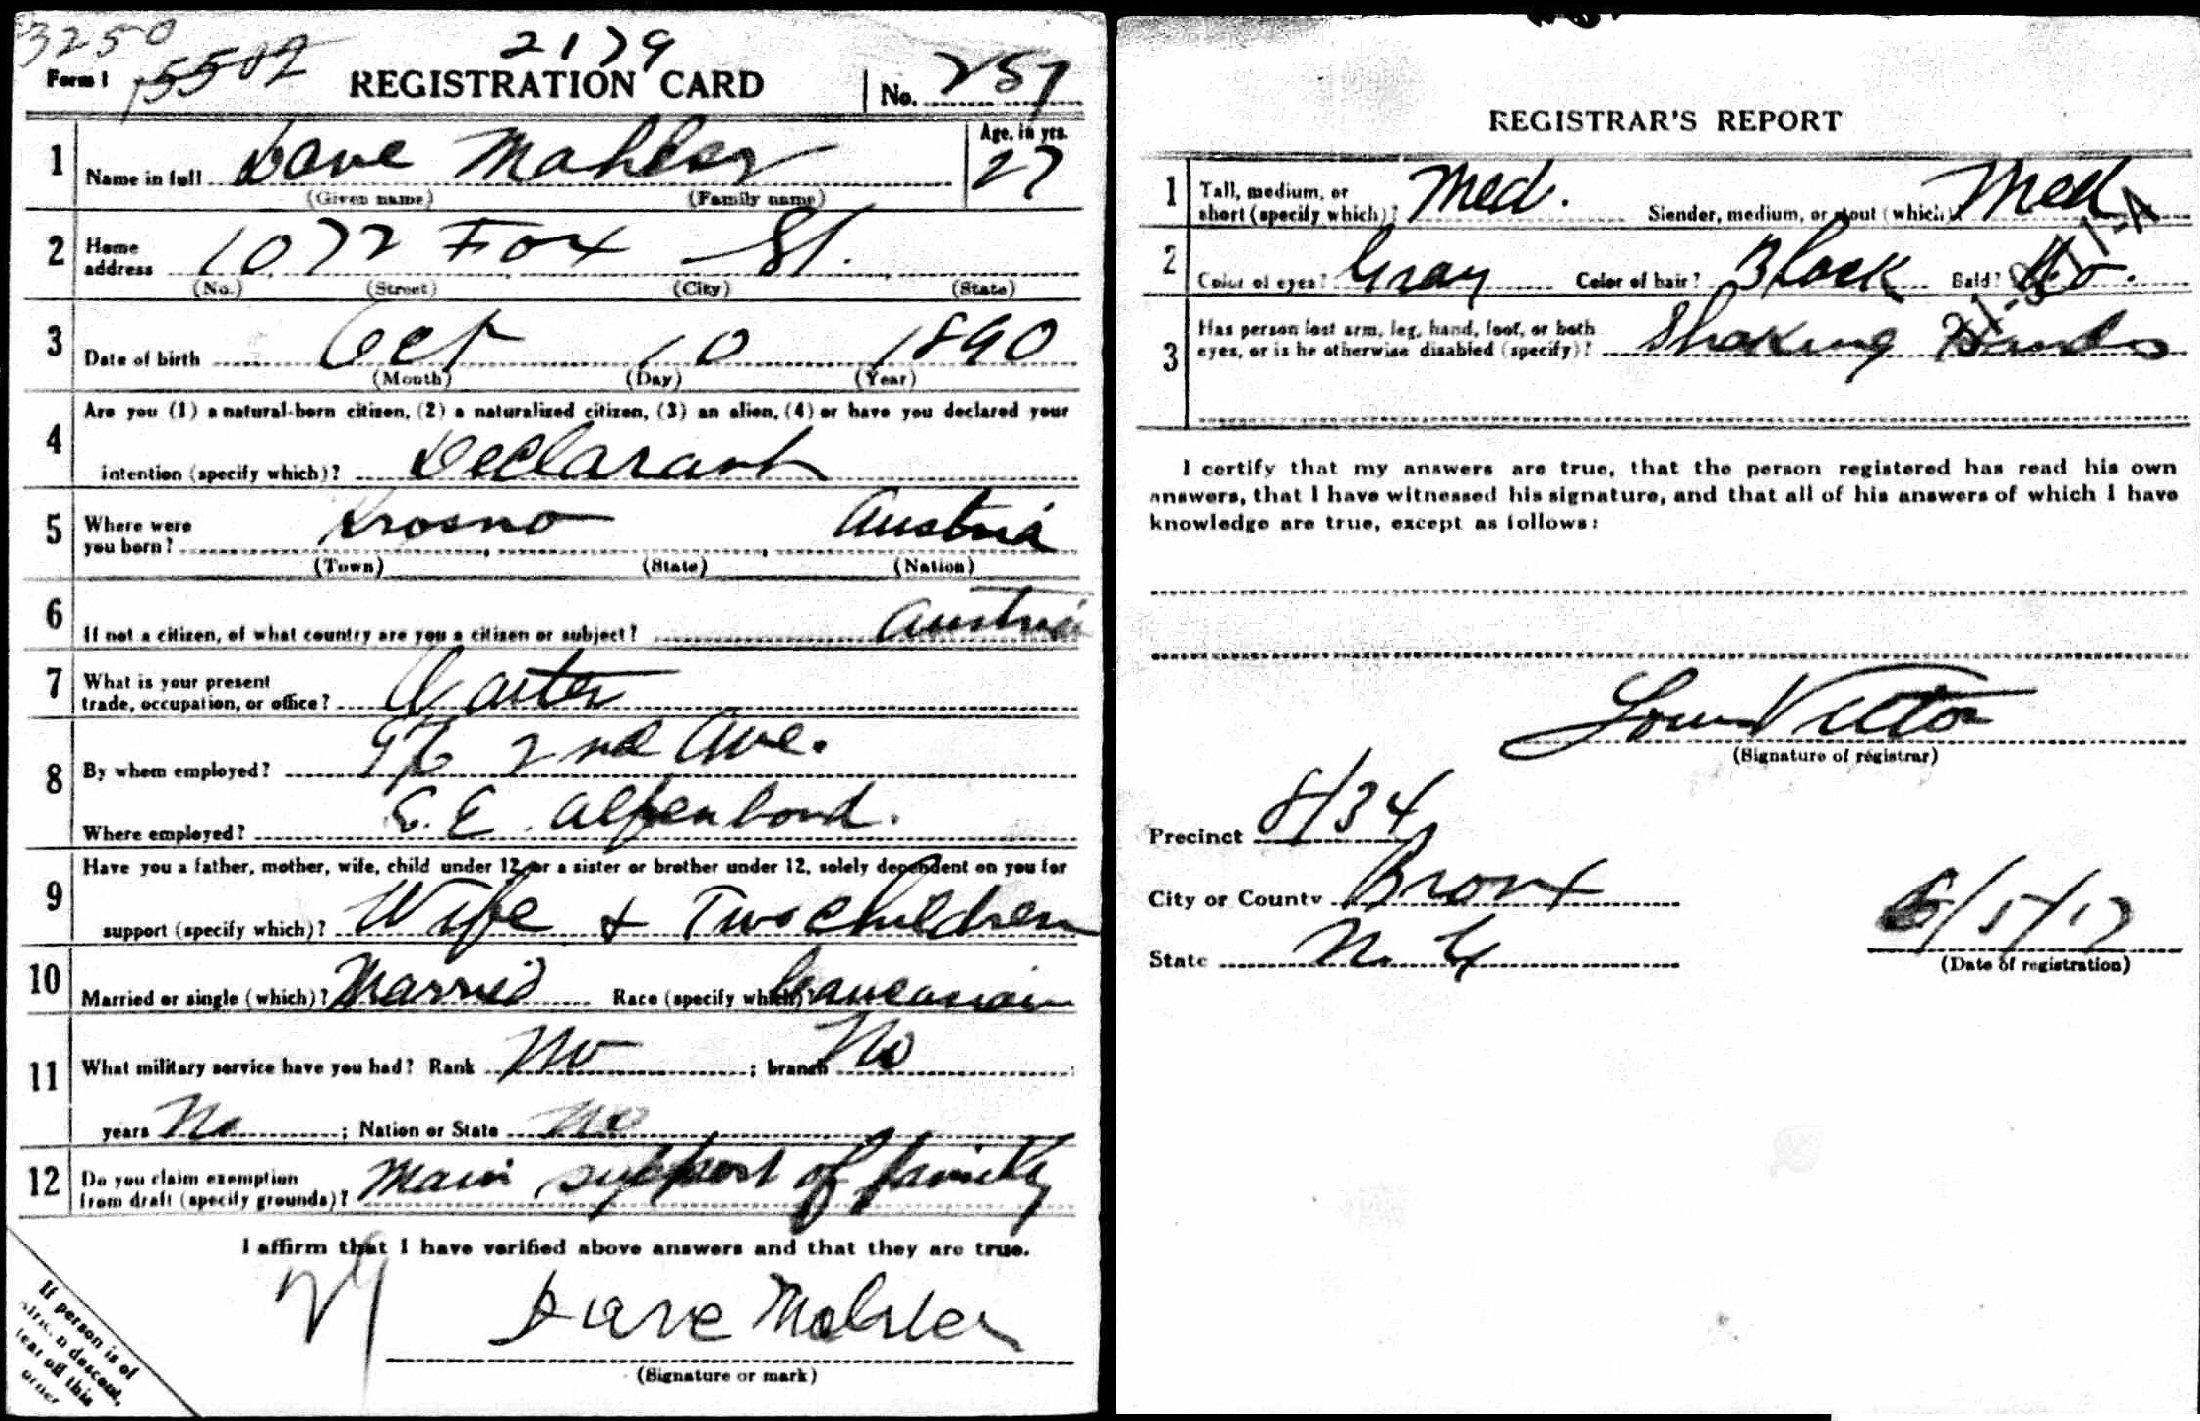 3250
5502
2179
Form 1 REGISTRATION CARD No. 257
1 Name in full Dave Mahler Age, in yrs. 27
(Given name) (Family name)
2 Home address 1072 Fox St.
(No.) (Street) (City) (State)
3 Date of birth Oct 10 1890
(Month) (Day) (Year)
4 Are you (1) a natural-born citizen, (2) a naturalized citizen, (3) an alien, (4) or have you declared your
intention (specify which)? Declarant
5 Where were you born? Krosno Austria
(Town) (State) (Nation)
6 If not a citizen, of what country are you a citizen or subject? Austria
7 What is your present
trade, occupation, or office?
8 By whom employed? 2nd Ave.
Where employed? S. E.
9 Have you a father, mother, wife, child under 12, or a sister or brother under 12, solely dependent on you for
support (specify which)? Wife + Two children
10 Married or single (which)? Married Race (specify which)? Caucasian
11 What military service have you had? Rank No ; branch No
years No ; Nation or State No
12 Do you claim exemption
from draft (specify grounds)? Main support of family
I affirm that I have verified above answers and that they are true.
Dave Mahler
(Signature or mark)
If person is of
descent,
tear off this
corner
REGISTRAR'S REPORT
1 Tall, medium, or
short (specify which)? Med. Slender, medium, or stout (which)? Med
2 Color of eyes? Gray Color of hair? Black Bald? No.
3 Has person lost arm, leg, hand, foot, or both
eyes, or is he otherwise disabled (specify)? Shaking Hands
I certify that my answers are true, that the person registered has read his own
answers, that I have witnessed his signature, and that all of his answers of which I have
knowledge are true, except as follows:
Louis Victor
(Signature of registrar)
Precinct 8/34
City or County Bronx
State N. Y
6/5/17
(Date of registration)